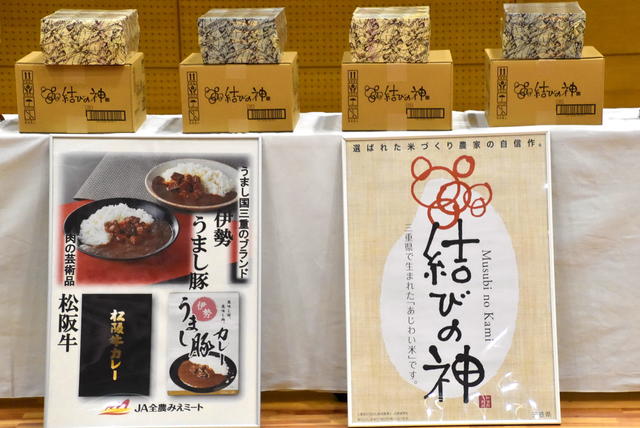 結びの神
結びの神
結びの神
結びの神
うまし国三重のブランド
伊勢
うまし豚
肉の芸術品
松阪牛
松阪牛カレー
伊勢
うまし豚
カレー
JA全農みえミート
選ばれた米づくり農家の自信作。
結びの神
Musubi no Kami
三重県で生まれた「あじわい米」です。
三重県